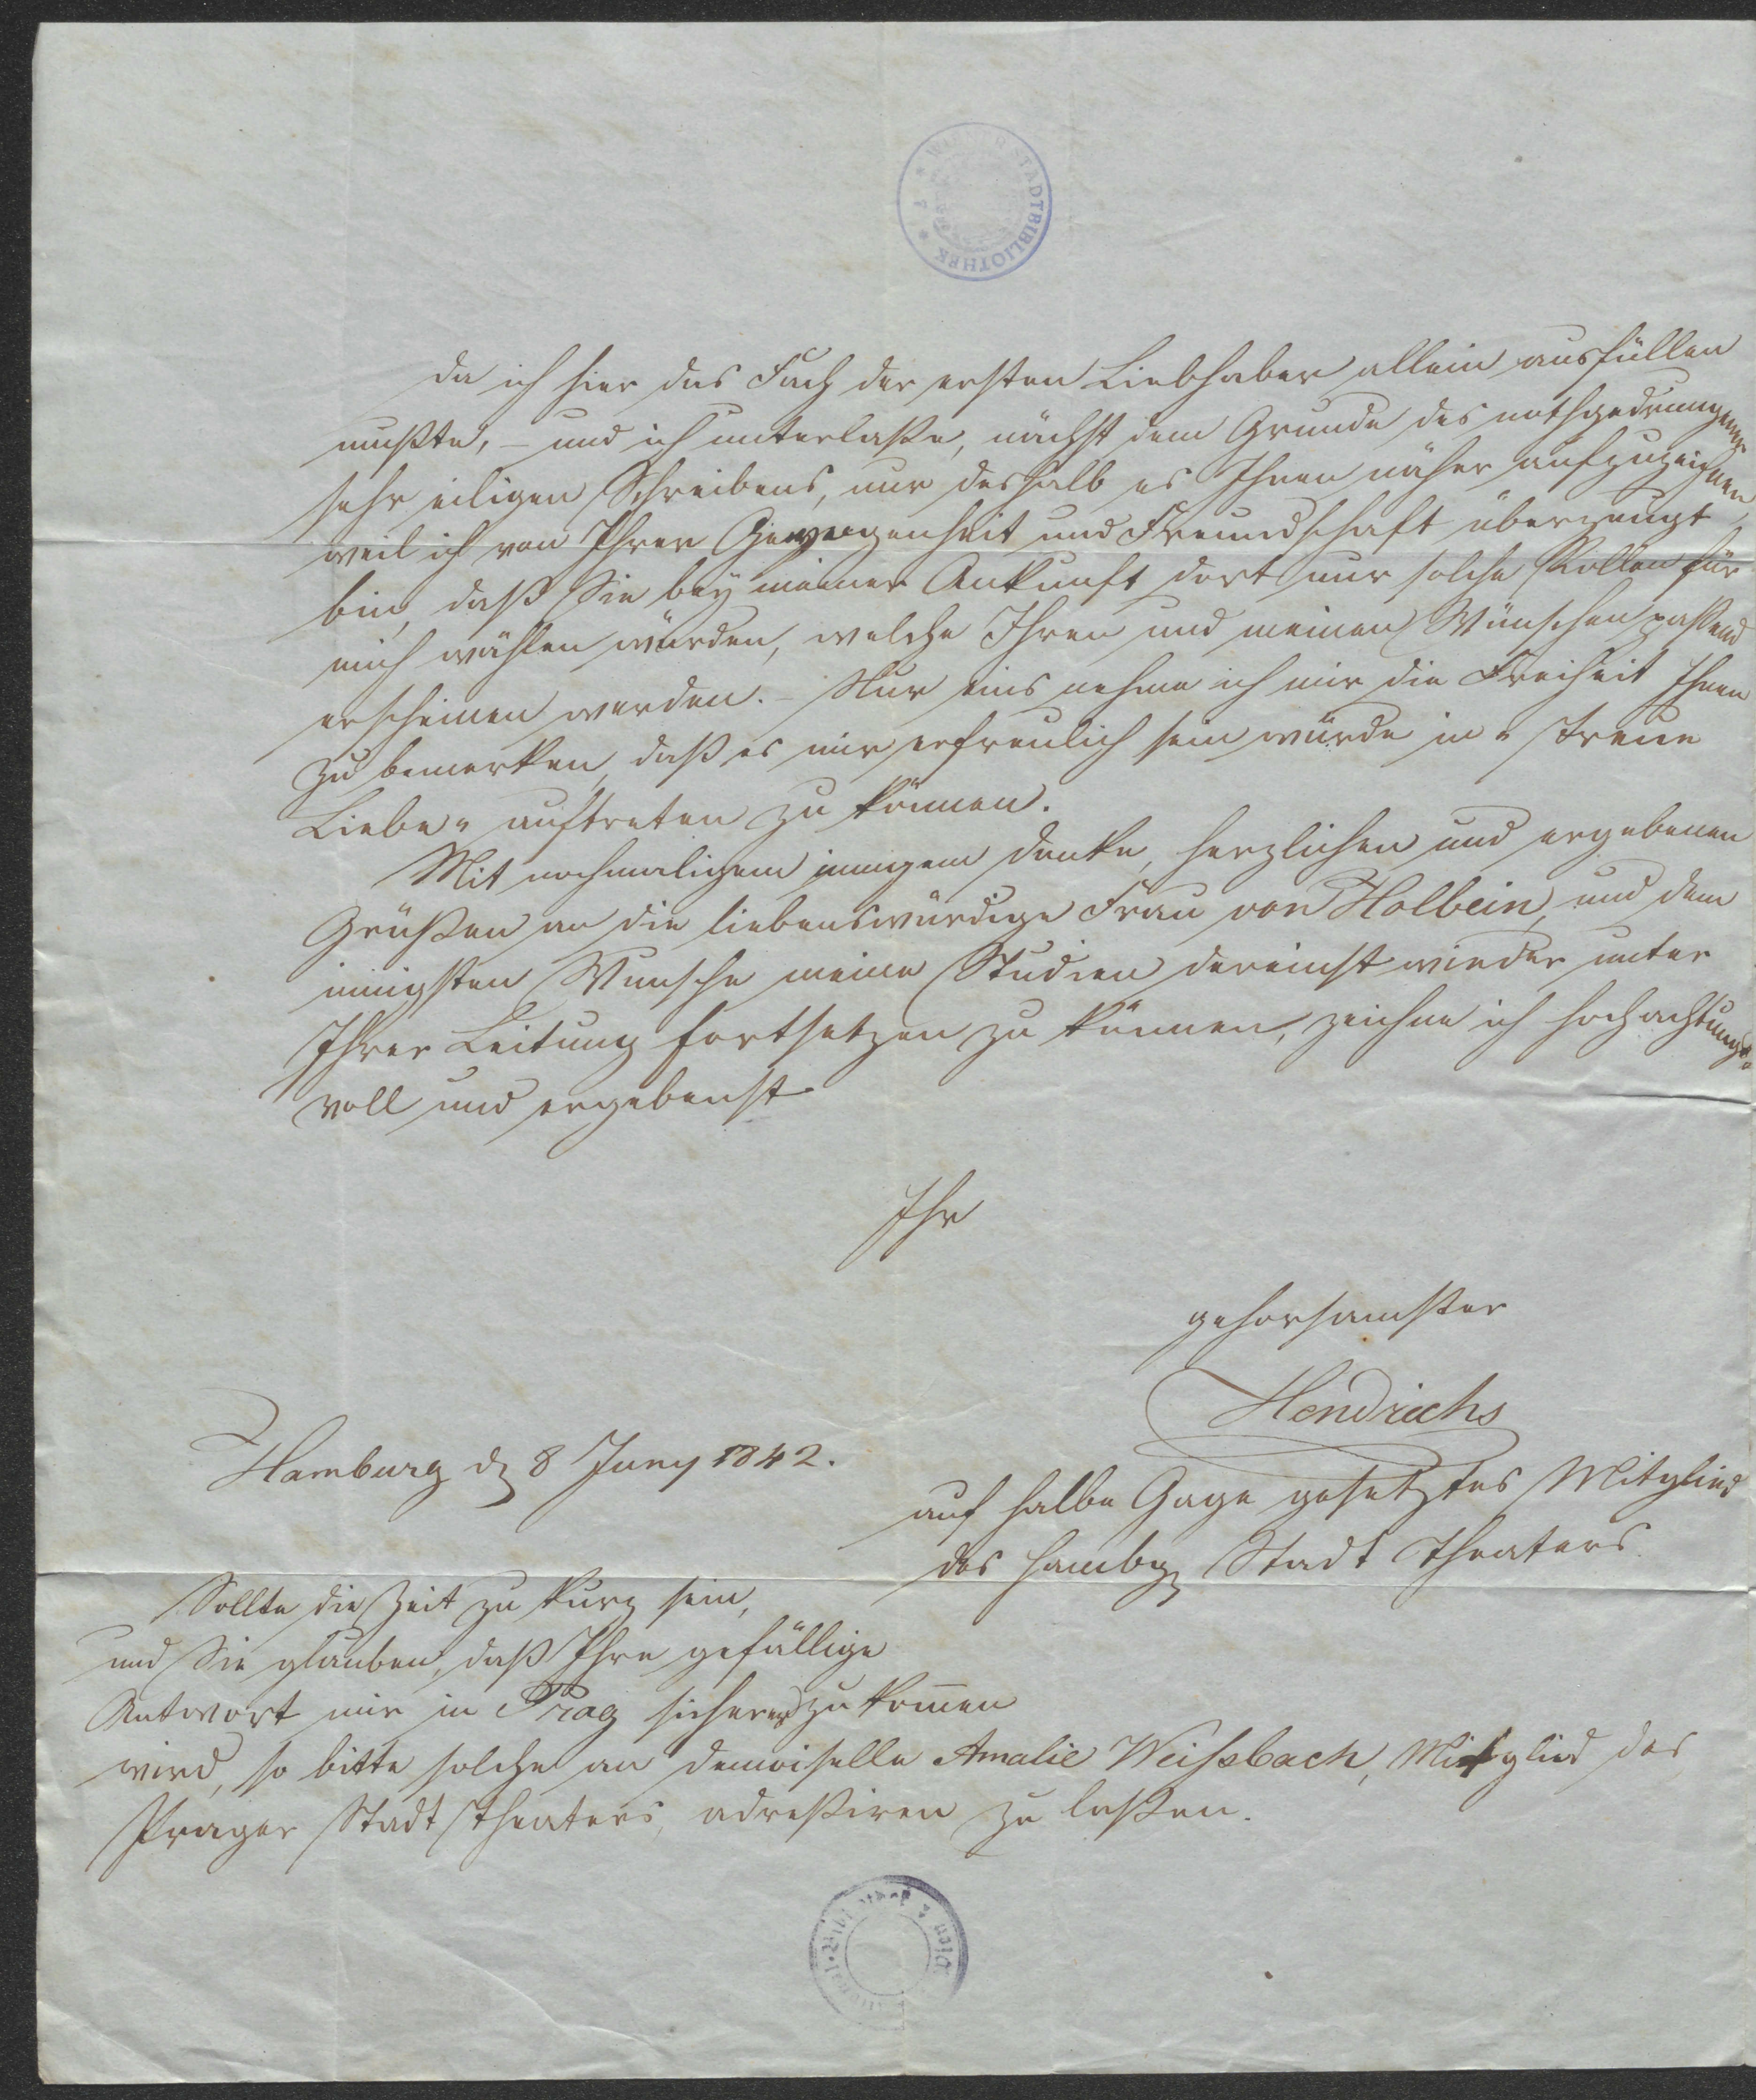 WIENER STADTBIBLIOTHEK
da ich hier das Fach der ersten Liebhaber allein ausfüllen
mußte, – und ich unterlaße, nächst dem Grunde des nothgedrungenen
sehr eiligen Schreibens, nur deshalb es Ihnen näher aufzuzeichnen
weil ich von Ihrer Gewogenheit und Freundschaft überzeugt
bin, daß Sie bey meiner Ankunft dort nur solche Rollen für
mich wählen würden, welche Ihren und meinen Wünschen paßend
erscheinen werden. – Nur eins nehme ich mir die Freiheit Ihnen
zu bemerken, daß es mir erfreulich sein würde in „treue
Liebe" auftreten zu können.
Mit nochmaligem innigem Danke, herzlichen und ergebenen
Grüßen an die liebenswürdige Frau von Holbein, und dem
innigsten Wunsche meine Studien dereinst wieder unter
Ihrer Leitung fortsetzen zu können, zeichne ich hochachtungs-
voll und ergebenst
Ihr
gehorsamster
Hendrichs
Hamburg d 8 Juny 1842.
auf halbe Gage gesetztes Mitglied
des Hambg Stadt Theaters.
Sollte die Zeit zu kurz sein,
und Sie glauben, daß Ihre gefällige
Antwort mir in Prag sicherer zukom̄en
wird, so bitte solche an Demoiselle Amalie Weißbach, Mitglied des
Prager Stadttheaters, adreßiren zu laßen.